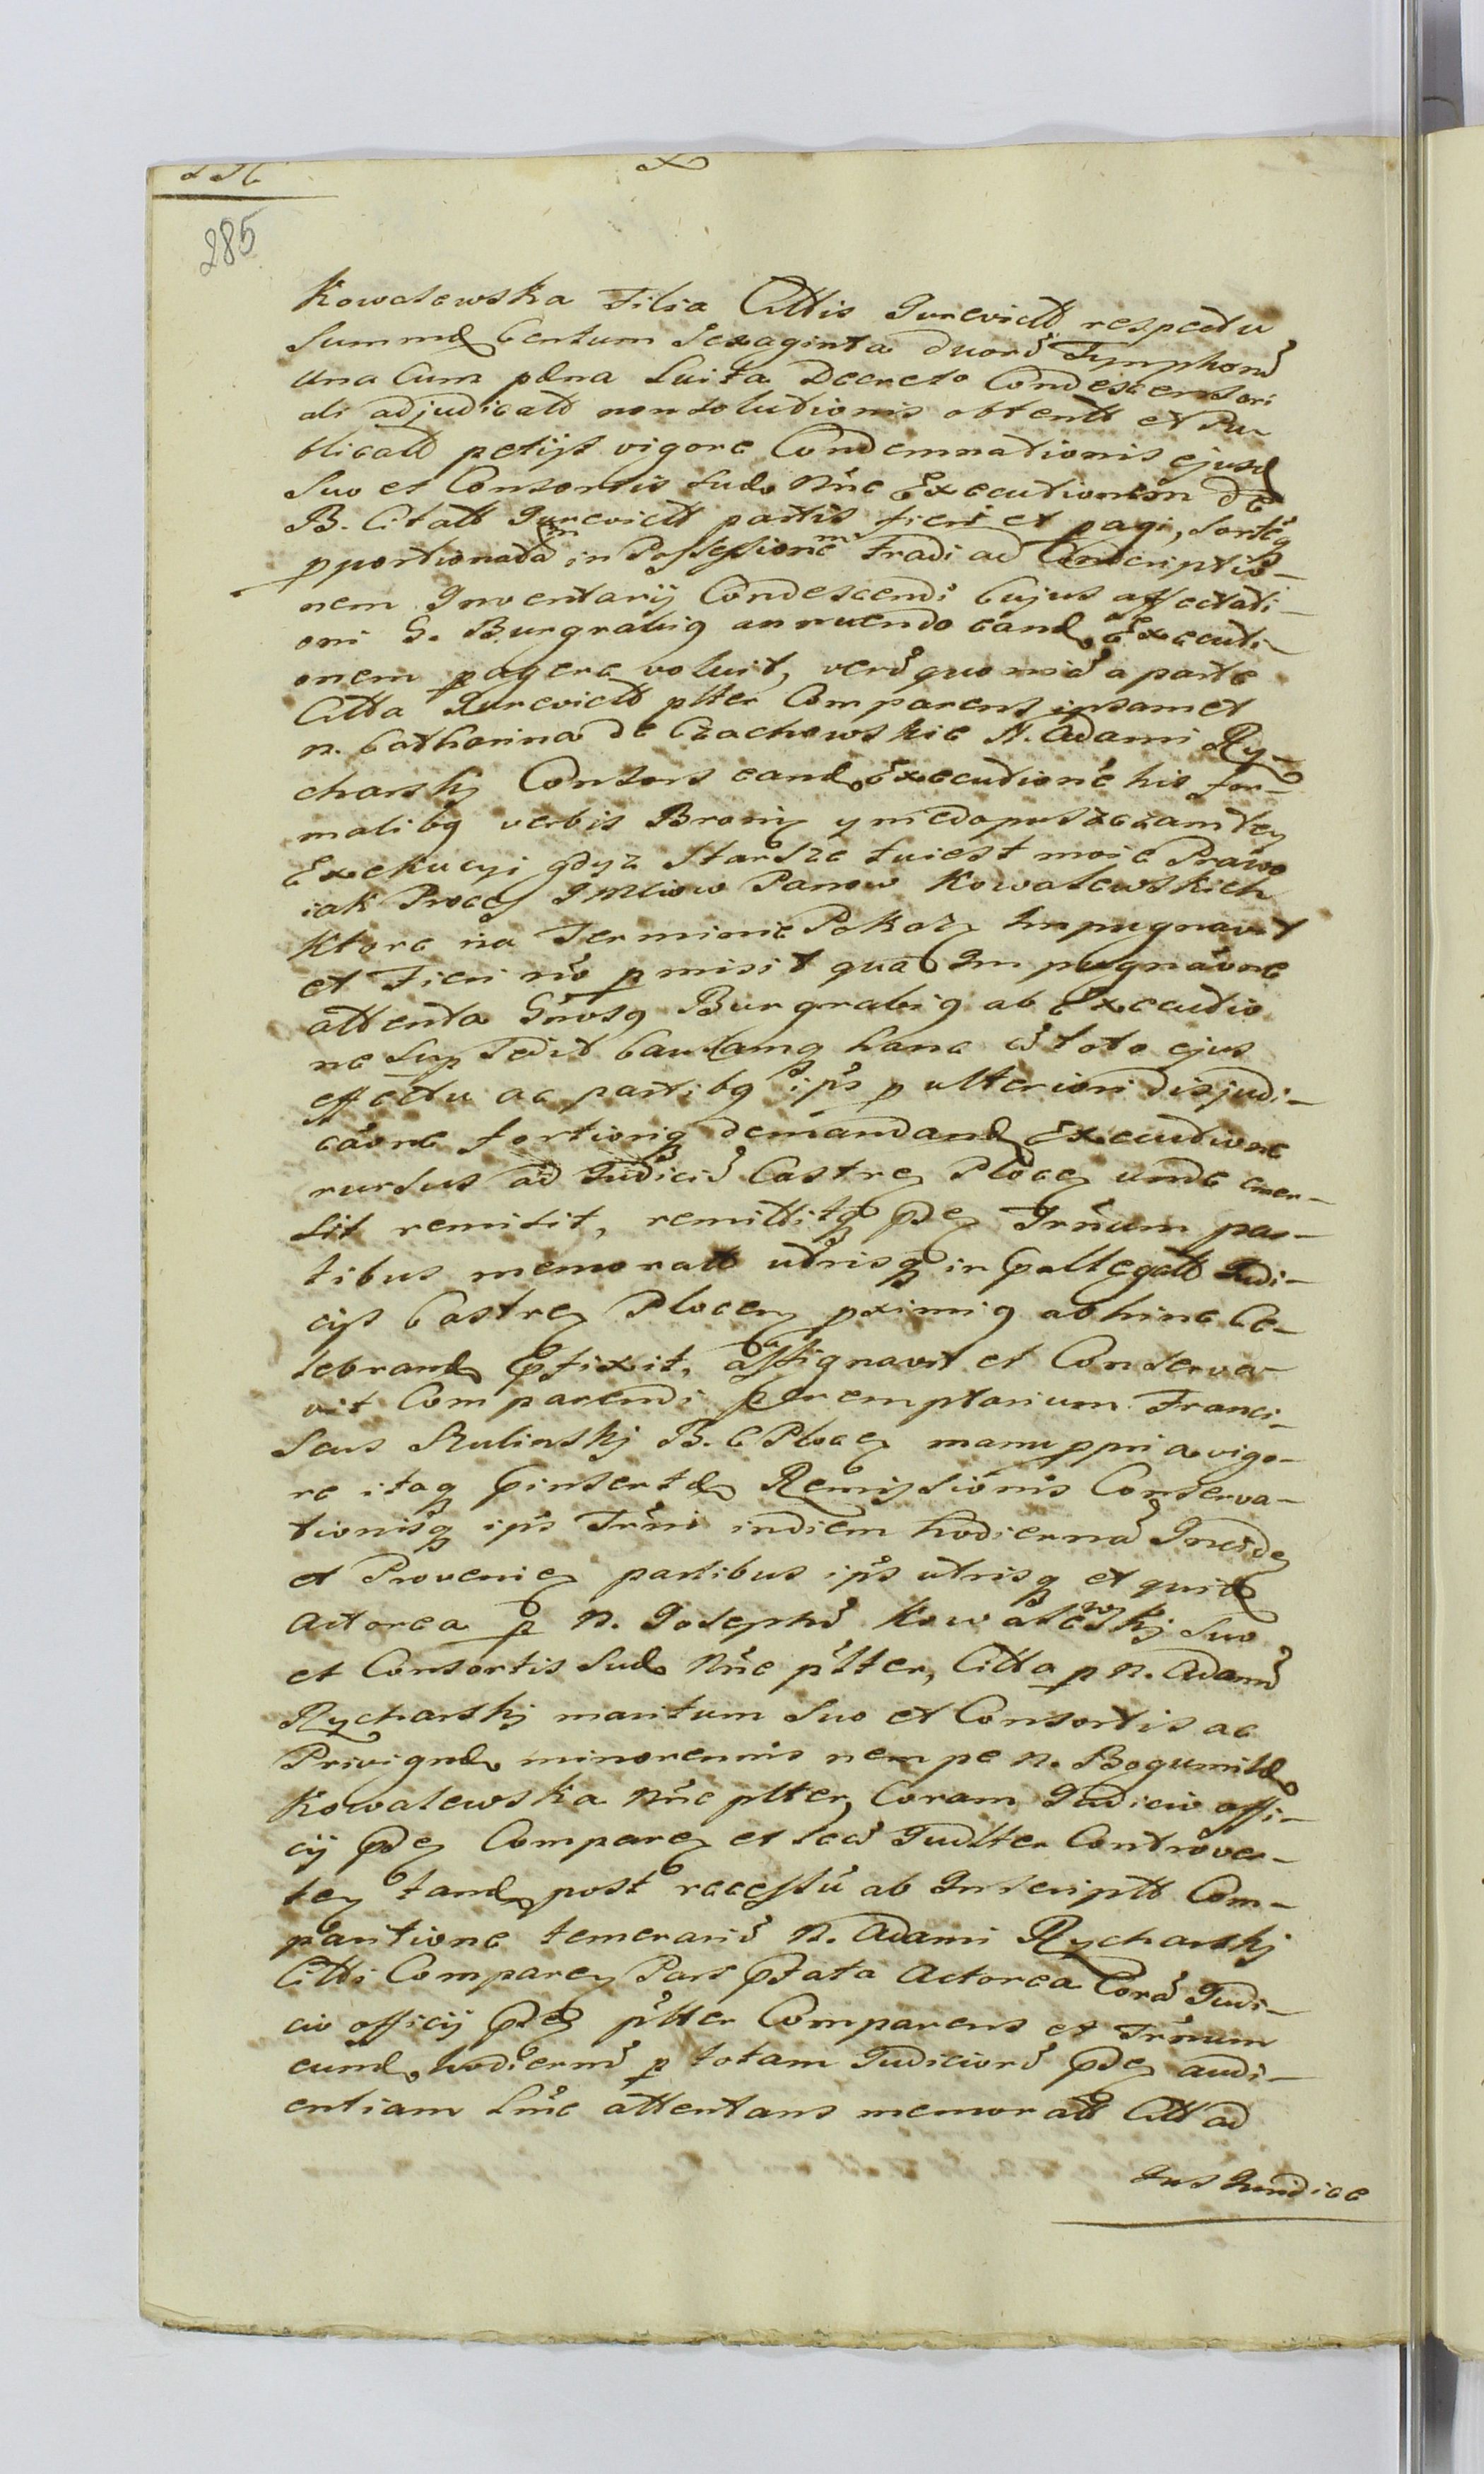 285
Kowalewska Filia Cittis Jurevictt respectu
Summæ Centum Sexaginta duorũ Tymphorũ
una Cum pæna Luita Decreto Condescensori
ali adjudicatt non solutionis obtentt et Pu
blicatt petijt vigore Condemnationis ejusd
Suo et Consortis suæ nñe Executionem de
B. Citatt Jurevictt partis fieri et pagi, sortẽq
pportionatã in Possessionem Tradi ad Conscriptio-
nem Inventarij Condescendi Cujus affectati-
oni G. Burgrabig annuendo eand Executi-
onem pagere voluit, verũ quoniã a parte
Citta Jurevictt pltter Comparens ipsamet
n. Catharina de Czachowskie N. Adami Ry-
charskj Consors eand Executionẽ his for-
malibq verbis Bronię y niedopuszczam tey
Exekucyi gdyz starsze tu iest moie Prawo
iak Process Imciow Panow Kowalewskich
Ktore na Terminie Pokazę Impugnavit
et Fieri nõ pmisit qua Impugnãone
attenta Gñosq Burgrabig ab Executio
ne Sup Sedit Causamq hanc cũ toto ejus
effectu ac partibq ipŝ p ulteriori disjudi-
cãone fortioriq demandand Executione
rursus ad Judiciũ Castreŋ Ploceŋ unde emer-
sit remisit, remittitq pdeŋ Trñum par-
tibus memoratt utrisq in pallegatt Judi-
cijs Castreŋ Ploceŋ pximig abhinc Ce-
lebrand pfixit, assignavit et Conserva-
vit Comparendi peremptorium Franci-
scus Rulinskj B. C Ploceŋ manu ppria vigo-
re itaq pinsertæ Remissionis Conserva-
tionisq ipŝ Trñi in diem hodiernã Incideŋ
et Provenieŋ partibus ipŝ utrisq et quid
Actorea p N. Josephũ Kowalewskj Suo
et Consortis Suæ Nñe pltter, Citta p N. Adamũ
Rycharskj maritum Suo et Consortis ac
Privignæ minorennis nempe N. Bogumilæ
Kowalewska Nñe pltter, Coram Judicio offi-
cij pdeŋ Compareŋ et secũ Judltter Controver-
teŋ tand post recessũ ab Inscriptt Com-
paritione temerariũ N. Adami Rycharskj
Citti Compareŋ Pars pfata Actorea Corã Judi-
cio officij pdeŋ pltter Comparens et Trñum
eund hodiernũ p totam Judiciorũ pdeŋ audi-
entiam Lmẽ attentans memoratt Citt ad
Jus Juridice